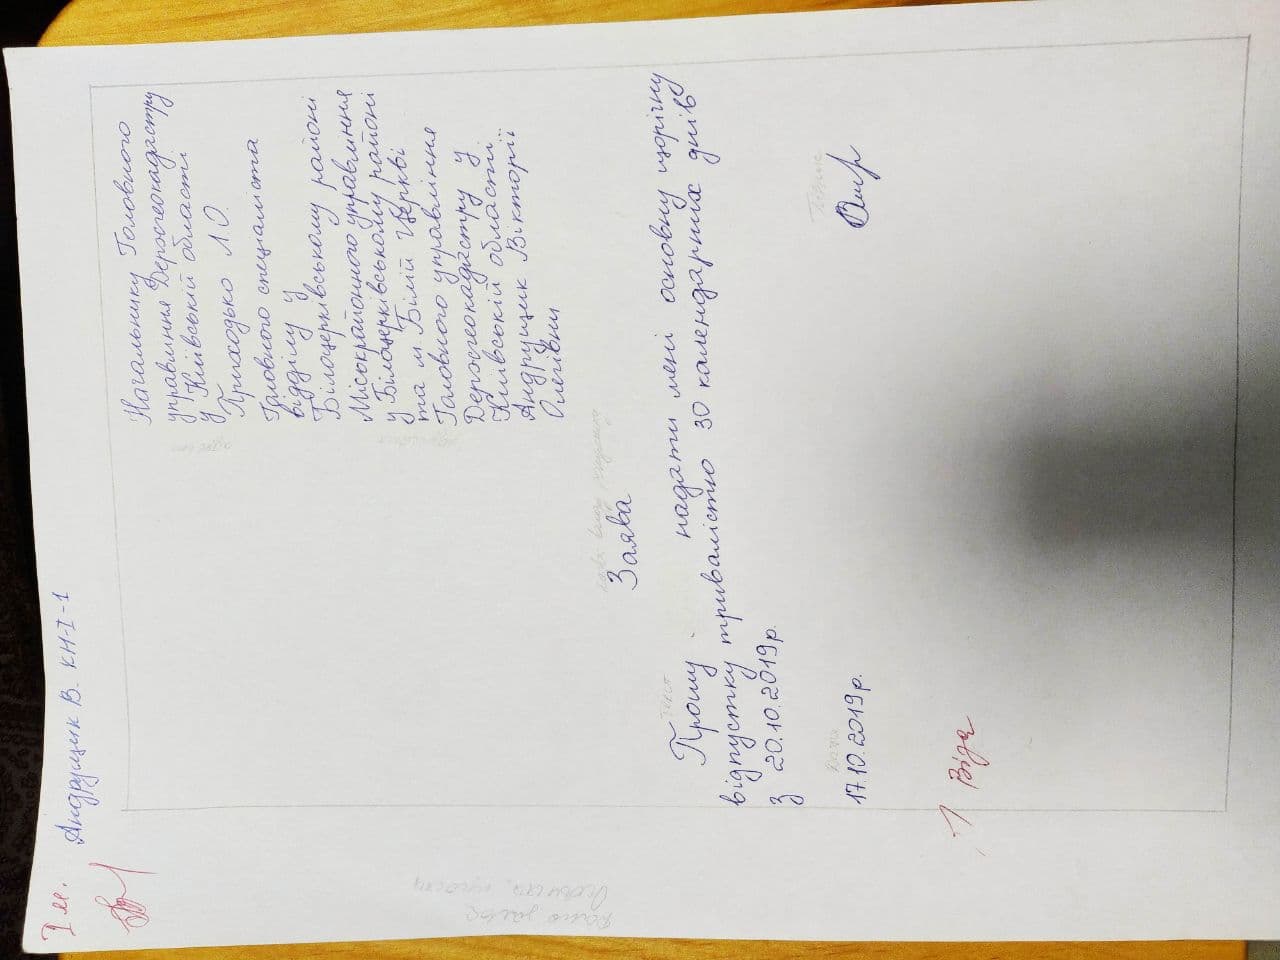 І м.
Андрущик В. КН-І-1
Начальнику Головного
управління Держгеокадастру
у Київській області
Приходько Л.О.
Головного спеціаліста
відділу у
Білоцерківському районі
Міськрайонного управління
у Білоцерківському районі
та м. Білій Церкві
Головного управління
Держгеокадастру у
Київській області
Андрущик Вікторії
Олегівни
назва виду документу
Заява
Текст
Прошу надати мені основну щорічну
відпустку тривалістю 30 календарних днів
з 20.10.2019р.
Дата
Підпис
17.10.2019р.
1 Віза